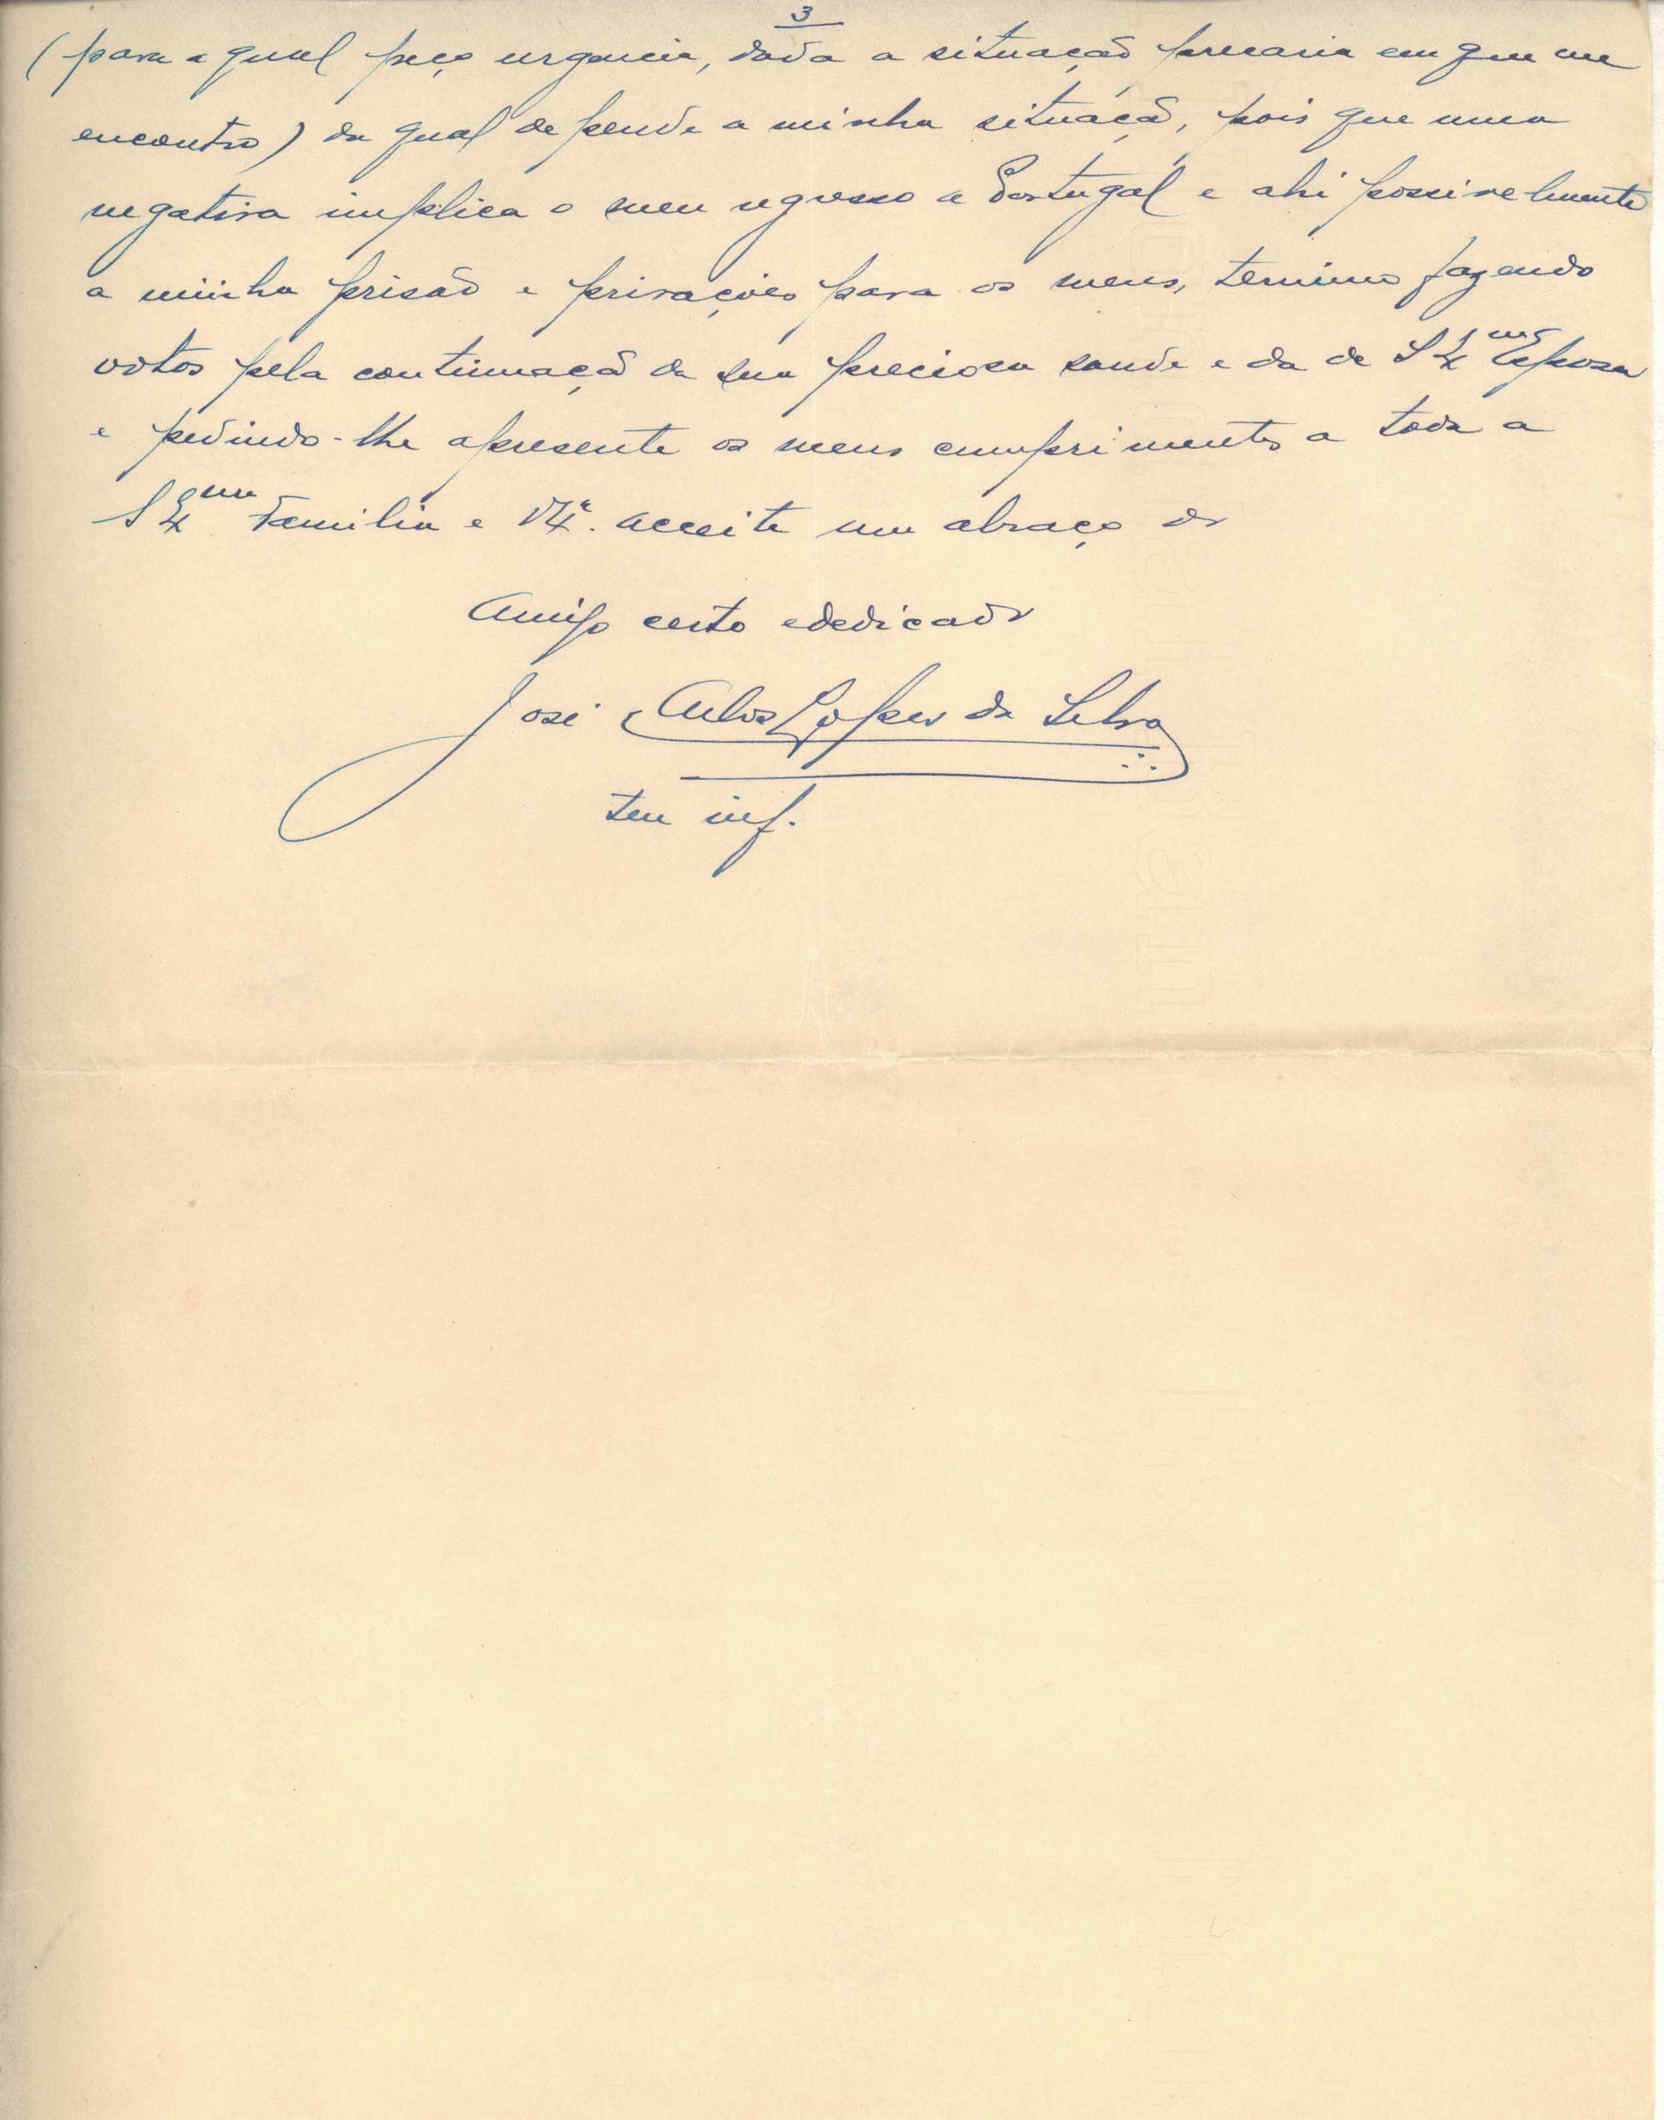 3
(para a qual peço urgencia, dada a situação precaria em que me
encontro) da qual depende a minha situaçã, pois que uma
negativa implica o meu regresso a Portugal e ahi possivelmente
a minha prisão e privações para os meus, termino fazendo
votos pela continuaçã da sua preciosa saude e da de S Ex.ma Esposa
e pedindo-lhe apresente os meus cumprimentos a toda a
S Ex.ma Familia e V. Ex.ª acceite um abraço do
Amigo certo e dedicado
José Lopes da Silva
ten inf.